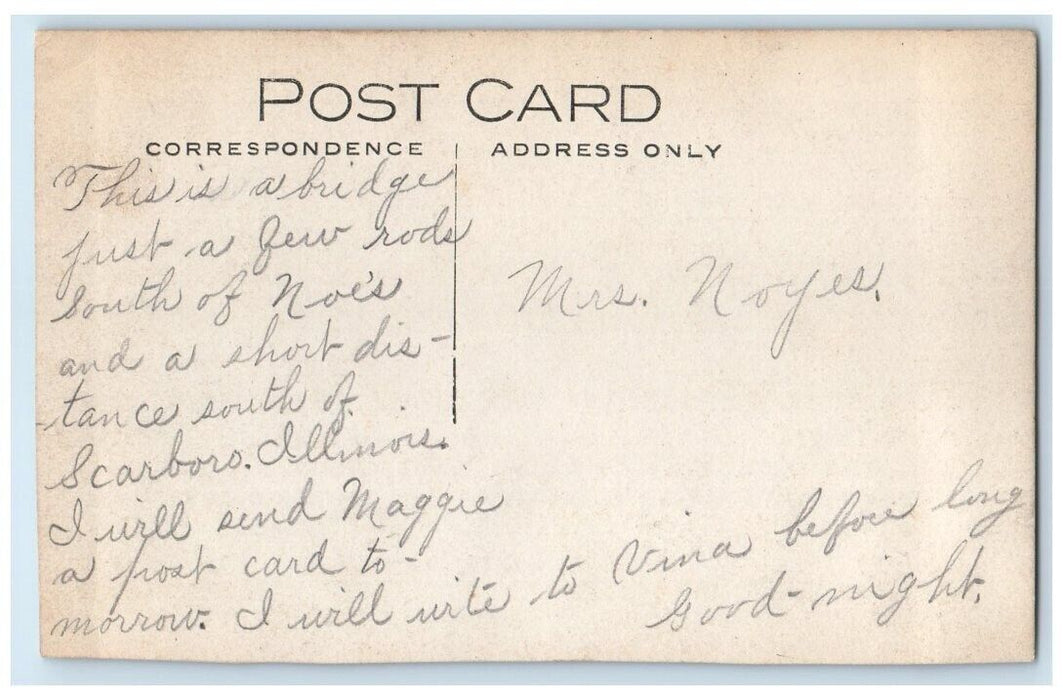 POST CARD
CORRESPONDENCE ADDRESS ONLY
This is a bridge
just a few rods
South of Noe's
and a short dis-
-tance south of
Scarboro. Illinois.
I will send Maggie
a post card to-
morrow. I will write to Vina before long
Good-night.
Mrs. Noyes.